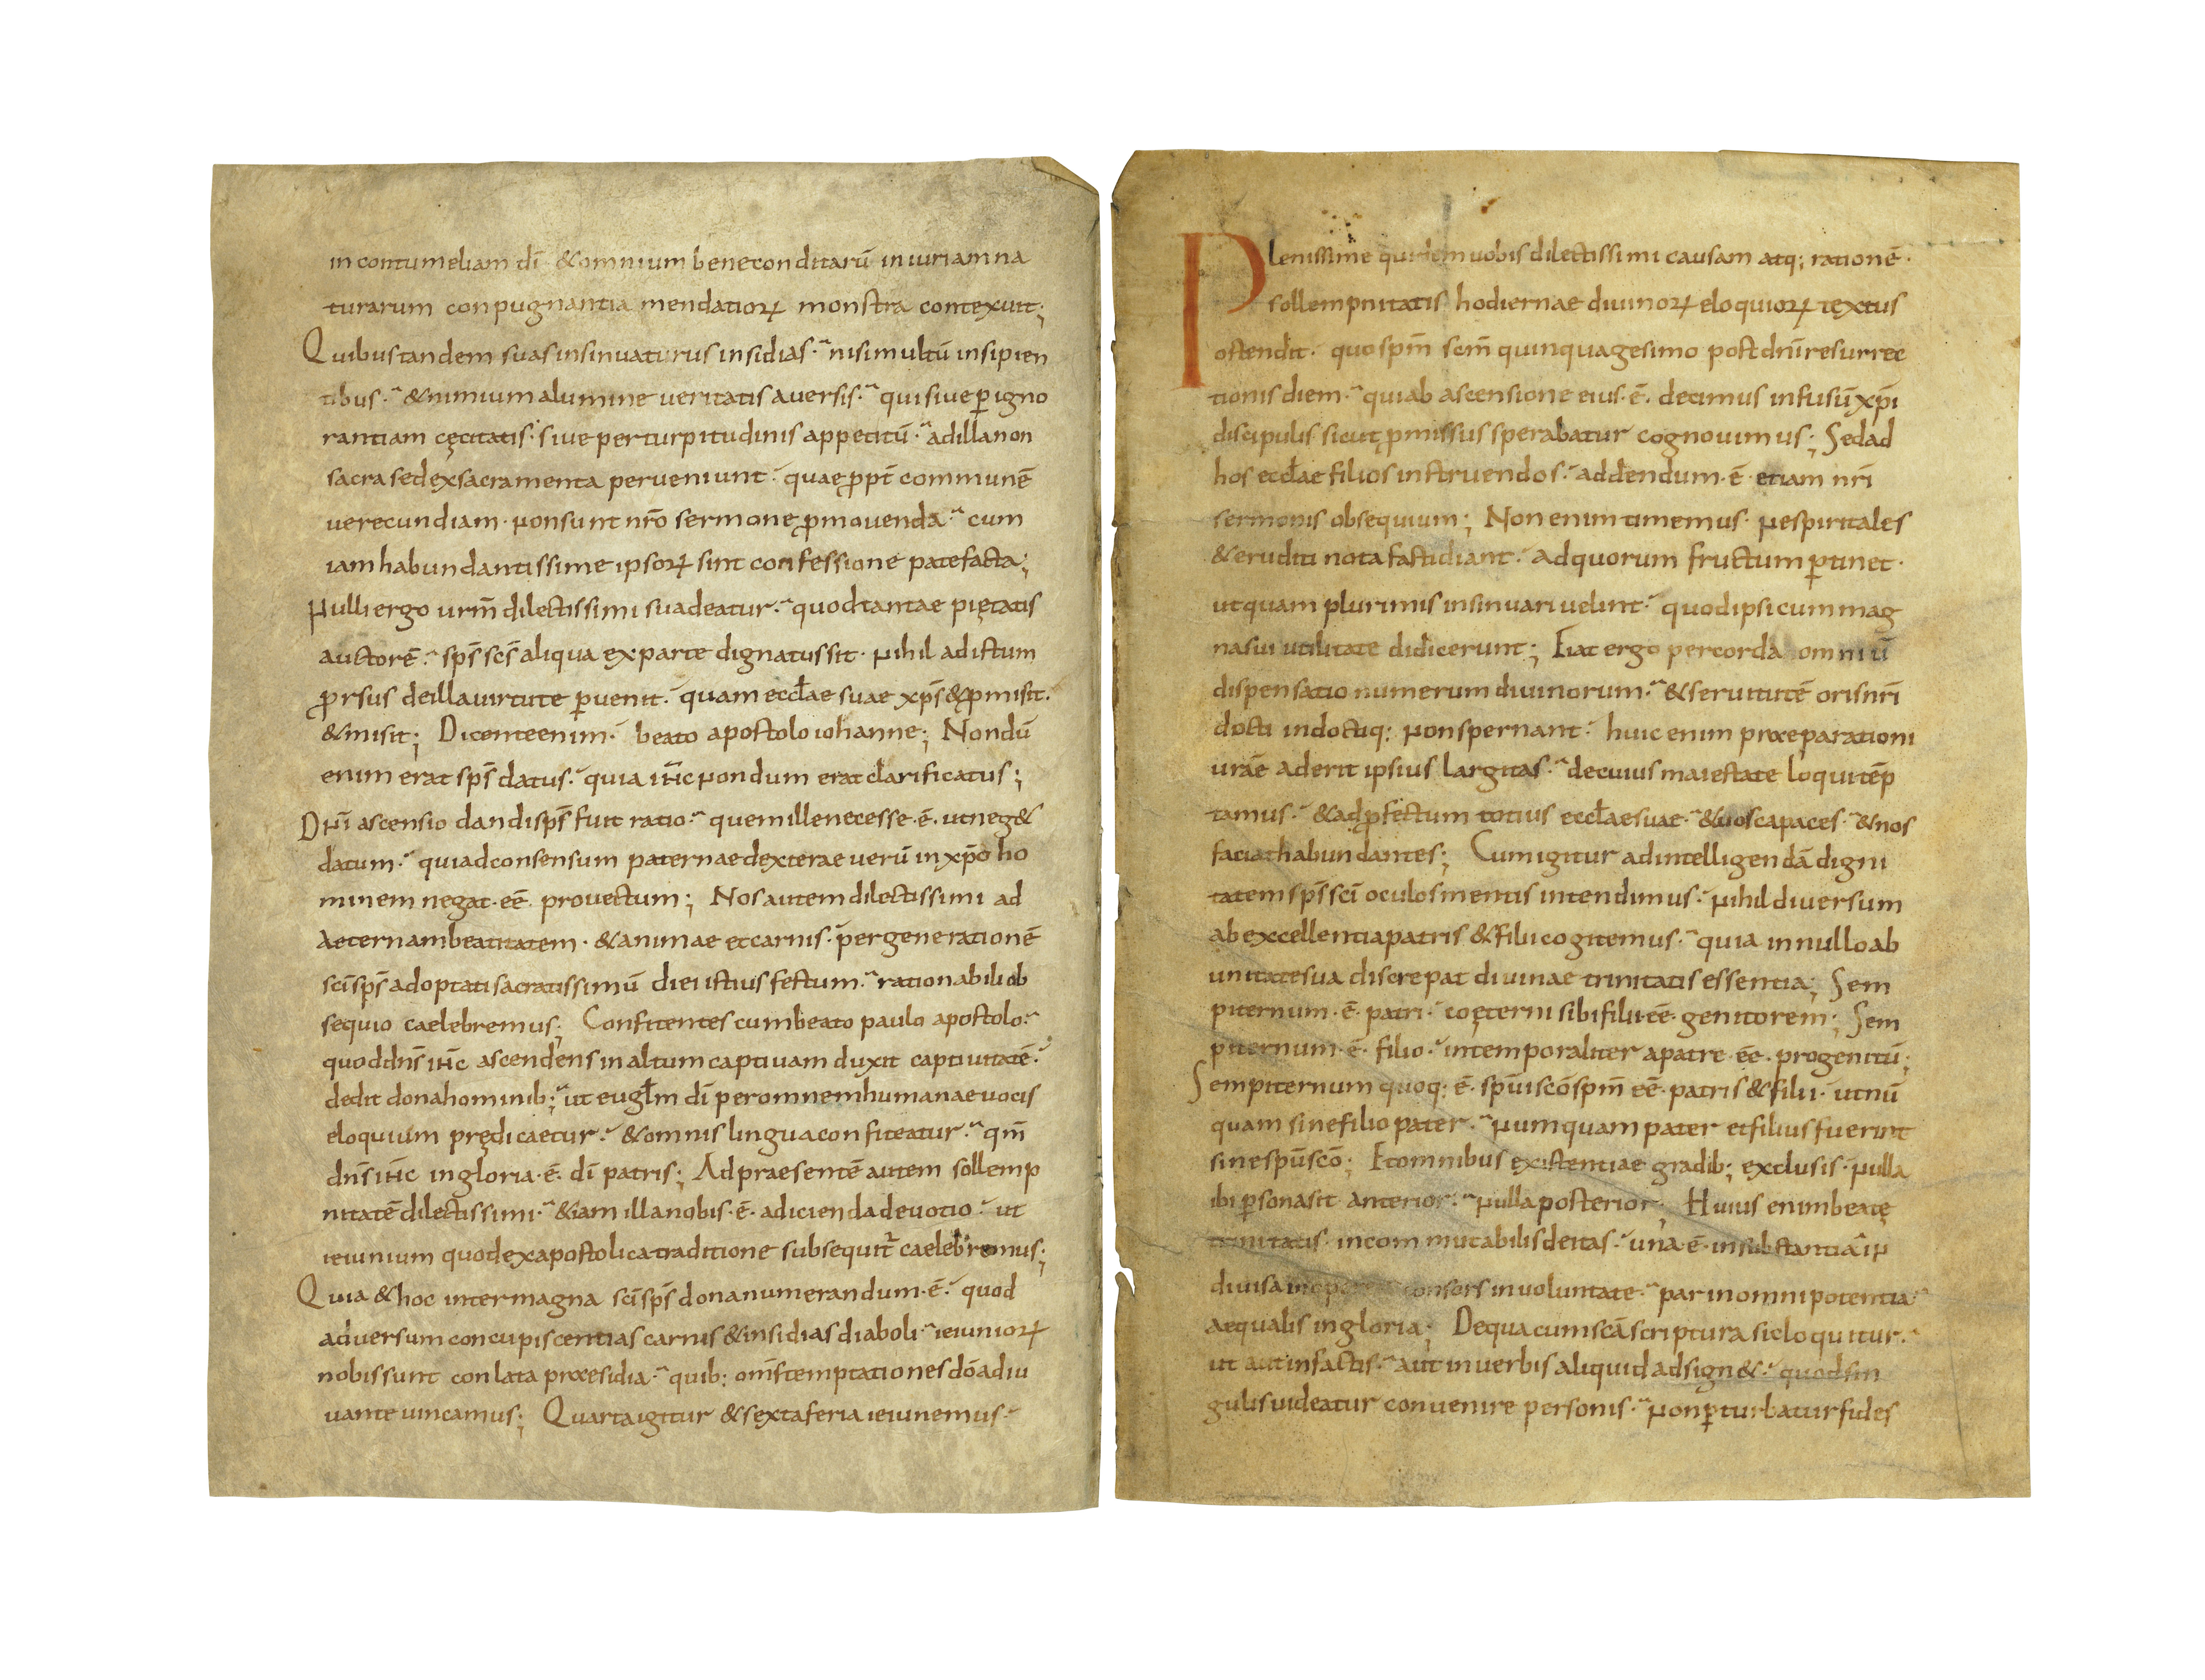 in contumeliam dī &omnium beneconditarū iniuriam na
turarum conpugnantia mendatioꝝ monstra contexuit;
Quibus tandem suas insinuaturus insidias· nisi multū insipien
tibus· &nimium a lumine ueritatis auersis· qui siue ꝑ igno
rantiam cęcitatis· siue per turpitudinis appetitū· ad illa non
sacra sed exsacramenta perueniunt· quae ꝓpt̄ communē
uerecundiam· non sunt nr̄o sermone ꝓmouenda· cum
iam habundantissime ipsoꝝ sint confessione patefacta;
Nulli ergo urm̄ dilectissimi suadeatur· quod tantae pietatis
auctorē· sps̄ scs̄ aliqua ex parte dignatus sit· nihil ad istum
ꝓrsus de illa uirtute ꝑuenit· quam eccƚae suae xps̄ &ꝓmisit·
&misit; Dicente enim· beato apostolo iohanne; Nondū
enim erat sps̄ datus· quia ih̄c nondum erat clarificatus;
Dn̄i ascensio dandi sps̄ fuit ratio· quem ille necesse·ē· ut neg&
datum· qui ad consensum paternae dexterae uerū in xp̄o ho
minem negat·eē prouectum; Nos autem dilectissimi ad
aeternam beatitatem· &animae et carnis· per generationē
scī sps̄ adoptati sacratissimū diei istius festum· rationabili ob
sequio caelebremus; Confitentes cum beato paulo apostolo·
quod dn̄s ih̄c ascendens in altum captiuam duxit captiuitatē·
dedit dona hominib; ut eugƚm dī per omnem humanae uocis
eloquium prędicaetur· &omnis lingua confiteatur· qm̄
dn̄s ih̄c in gloria·ē· dī patris; Ad praesentē autem sollemp
nitatē dilectissimi· &iam illa nobis·ē· adicienda deuotio· ut
ieiunium quod ex apostolica traditione subsequit̄ caelebremus;
Quia &hoc inter magna scī sps̄ dona numerandum·ē· quod
aduersum concupiscentias carnis &insidias diaboli· ieiunioꝝ
nobis sunt conlata praesidia· quib; om̄s temptationes dō adiu
uante uincamus; Quarta igitur &sexta feria ieiunemus·
Plenissime quidem uobis dilectissimi causam atq; rationē·
sollempnitatis hodiernae diuinoꝝ eloquioꝝ textus
ostendit· quo spm̄ scm̄ quinquagesimo post dn̄i resurrec
tionis diem· qui ab ascensione eius·ē· decimus infusū xp̄i
discipulis sicut ꝓmissus sperabatur cognouimus; Sed ad
hos eccƚae filios instruendos· addendum·ē· etiam nr̄i
sermonis obsequium; Non enim timemus· ne spiritales
&eruditi nota fastidiant· ad quorum fructum ꝑtinet·
ut quam plurimis insinuari uelint· quod ipsi cum mag
na sui utilitate didicerunt; Eiat ergo per corda omniū
dispensatio numerum diuinorum· &seruitutē oris nr̄i
docti indoctiq; non spernant· huic enim praeparationi
urāe aderit ipsius largitas· de cuius maiestate loqui tēp
tamus· &ad ꝓfectum totius eccƚae suae· &uos capaces· &nos
faciat habundantes; Cum igitur ad intelligendā digni
tatem sps̄ scī oculos mentis intendimus· nihil diuersum
ab excellentia patris &filii cogitemus· quia in nullo ab
unitate sua discrepat diuinae trinitatis essentia; Sem
piternum·ē· patri· coęterni sibi filii·eē· genitorem; Sem
piternum·ē· filio· intemporaliter a patre·eē· progenitū;
Sempiternum quoq;·ē· spūi scō spm̄ eē· patris &filii· ut nū
quam sine filio pater· numquam pater et filius fuerint
sine spū scō; Et omnibus existentiae gradib; exclusis· nulla
ibi ꝑsona sit anterior· nulla posterior· Huius enim beatę
trinitatis incommutabilis deitas· una·ē· in substantia· in
diuisa in opere consors in uoluntate· par in omnipotentia·
aequalis in gloria; De qua cum scā scriptura sic loquitur·
ut aut in factis· aut in uerbis aliquid adsign&· quod sin
gulis uideatur conuenire personis· non ꝑturbatur fides